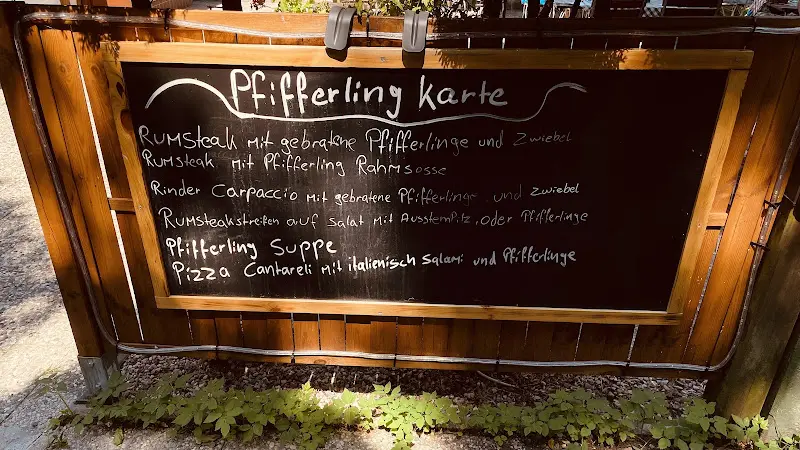 Pfifferling Karte
Rumsteak mit gebratene Pfifferlinge und Zwiebel
Rumsteak mit Pfifferling Rahmsosse
Rinder Carpaccio mit gebratene Pfifferlinge und Zwiebel
Rumsteakstreifen auf Salat mit Austernpilz, oder Pfifferlinge
Pfifferling Suppe
Pizza Cantareli mit italienisch Salami und Pfifferlinge